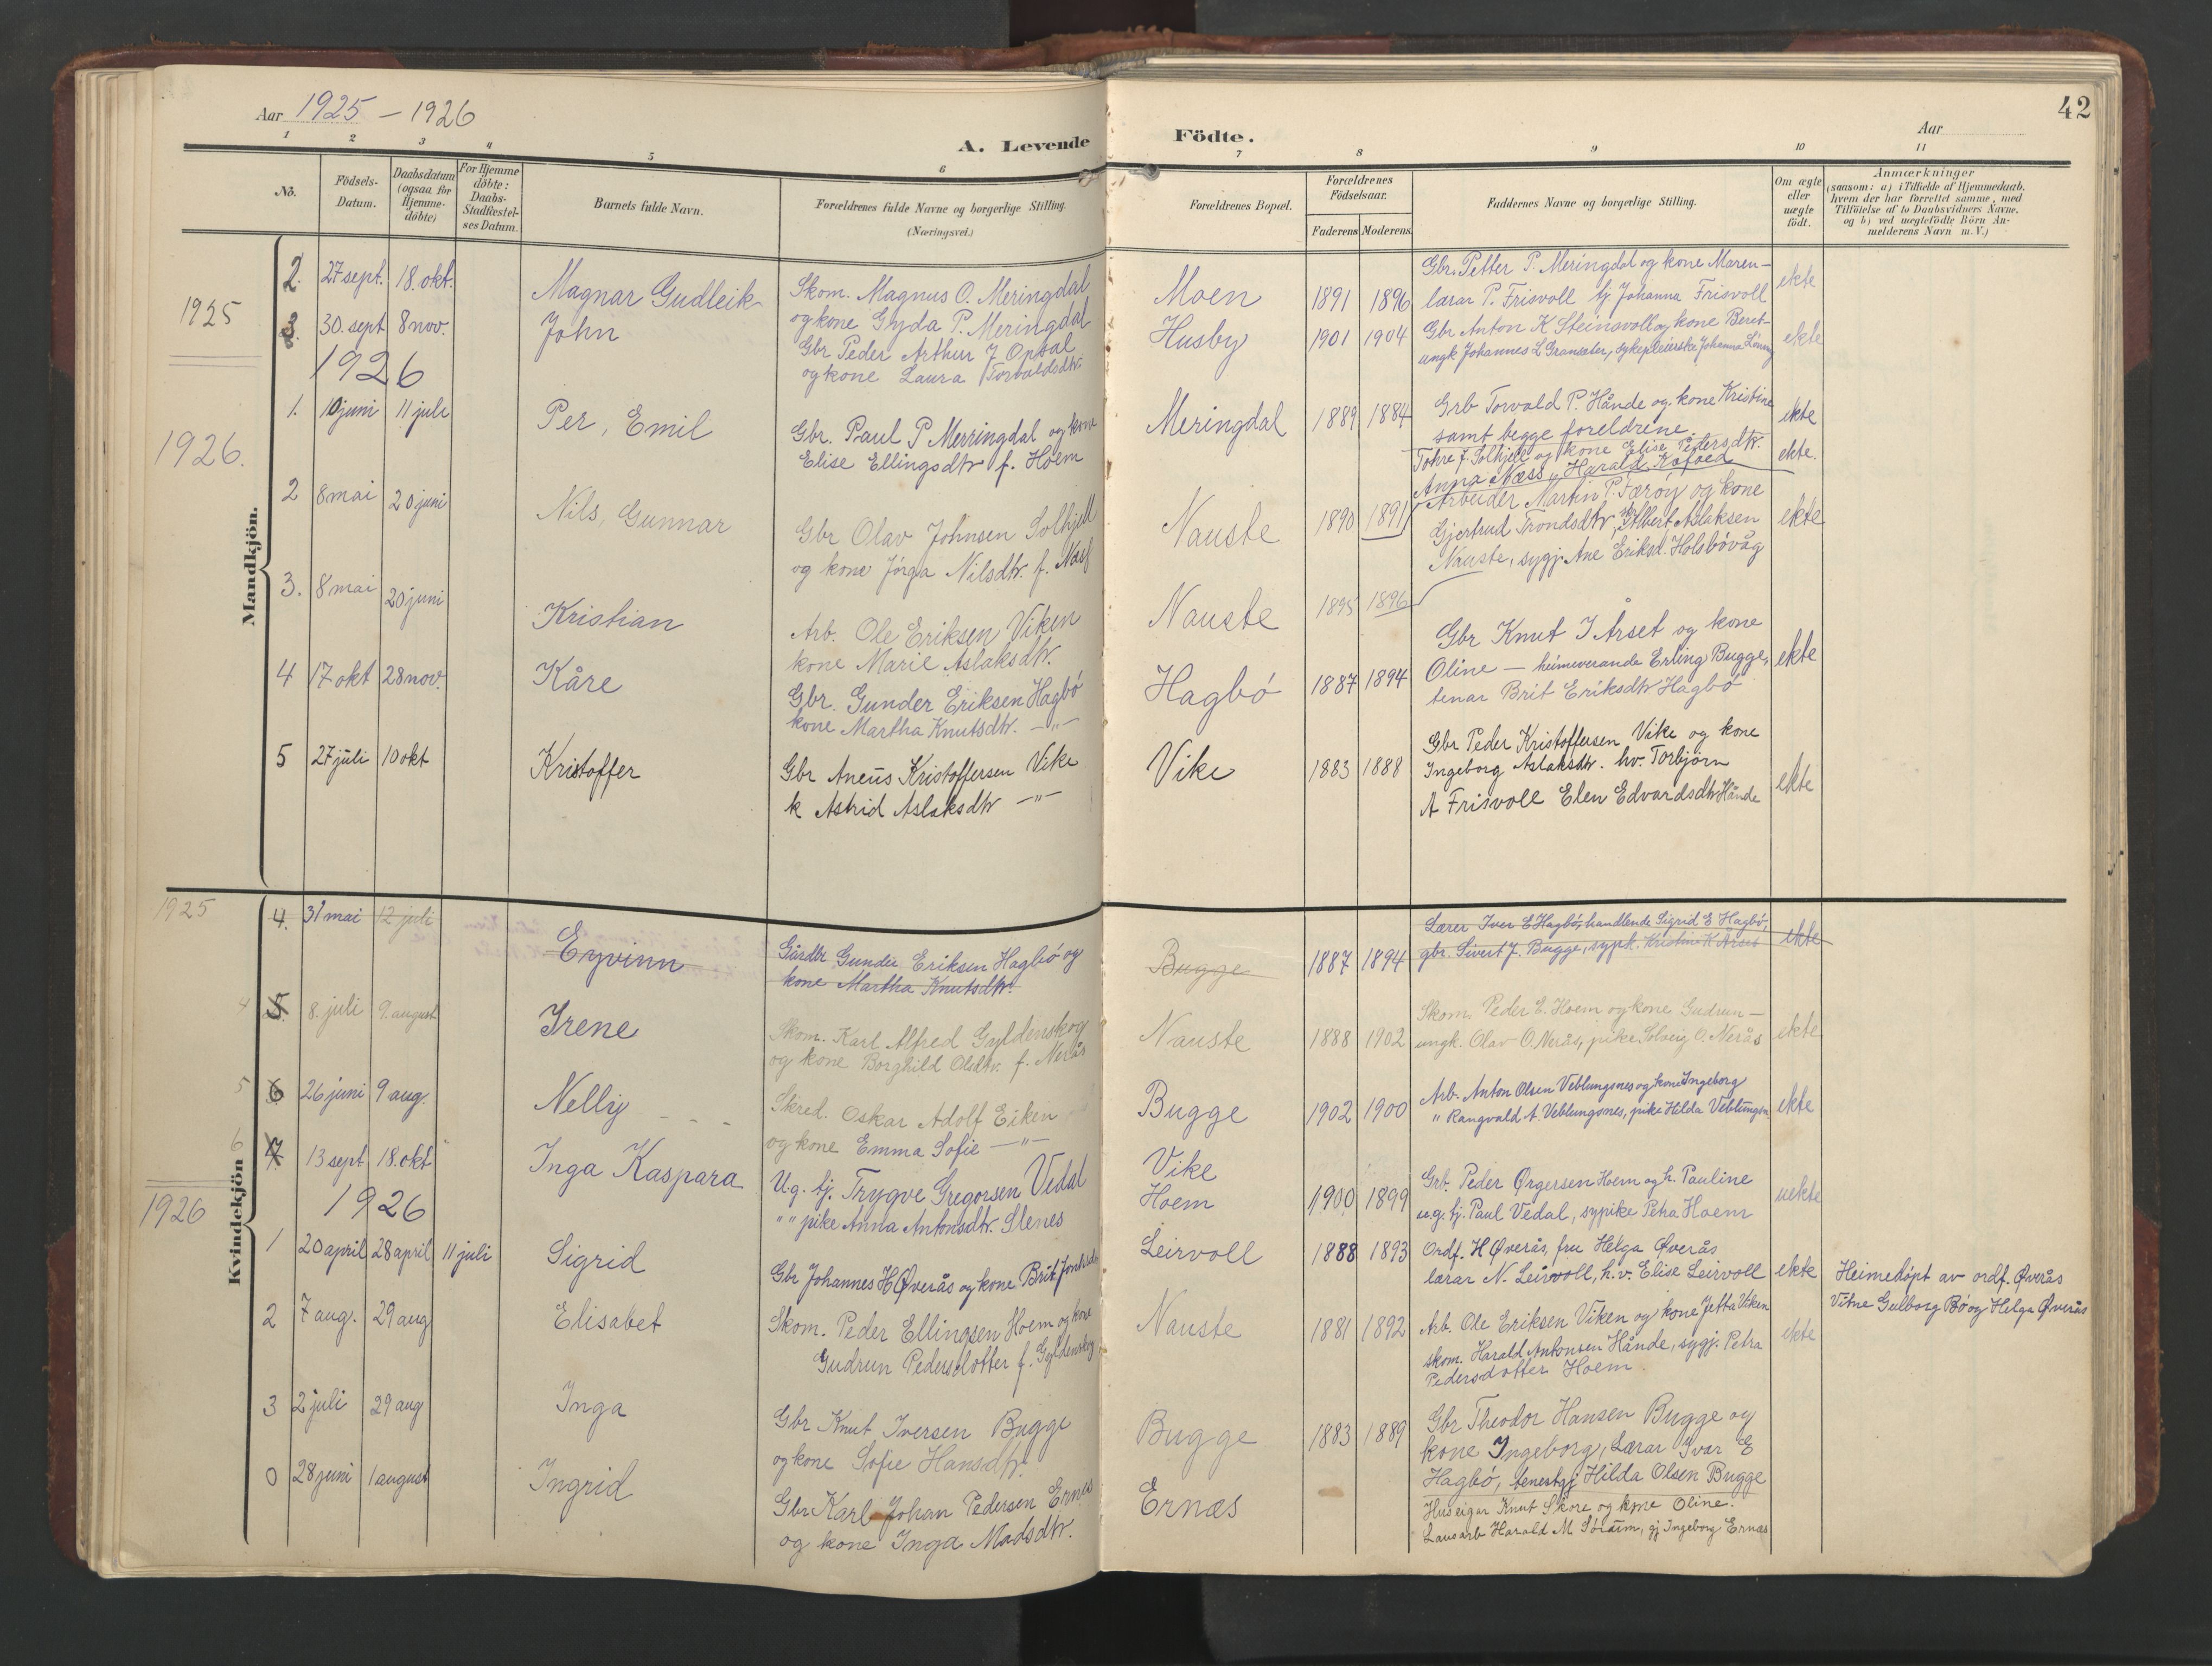 Aar 1925 – 1926
A. Levende Födte.
Aar
42
1 2 3 4 5 6 7 8 9 10 11
No.
Födsels-Datum.
Daabsdatum (ogsaa for Hjemme-döbte)
For Hjemme döbte: Daabs-Stadfæstel-ses Datum.
Barnets fulde Navn.
Forældrenes fulde Navne og borgerlige Stilling.
(Næringsvei.)
Forældrenes Bopæl.
Forældrenes Födselsaar.
Faderens Moderens
Faddernes Navne og borgerlige Stilling.
Om ægte eller uægte födt.
Anmærkninger
(saasom: a) i Tilfælde af Hjemmedaab.
hvem der har forrettet samme, med
Tilföielse af to Daabsvidners Navne.
og b) ved uegtefödte Börn An-
melderens Navn m.V.)
Mandkjön.
1925
2. 27 sept. 18. okt. Magnar Gudleik
Skom. Magnus O. Meringdal
og kone Gyda P. Meringdal
Moen 1891 1896
Gbr. Petter P. Meringdal og kone Maren –
lærar P. Frisvoll tj Johanna Frisvoll
ekte
3. 30. sept 8 nov. John
Gbr Peder Arthur J Opsal
og kone Laura Torvaldsdtr.
Husby 1901 1904
Gbr Anton K Steinsvoll og kone Beret –
ungk Johannes L Gransæter, sykepleierske Johanna
ekte
1926
1926.
1. 10 juni 11 juli Per, Emil
Gbr. Paul P Merringdal og kone
Elise Ellingsdtr f. Hoem
Meringdal 1889 1884
Grb Torvald P. Hånde og kone Kristine
samt begge foreldrene.
ekte
2 8 mai 20 juni Nils, Gunnar
Gbr Olav Johnsen Solhjell
og kone Jørga Nilsdtr. f. Næs
Nauste 1890 1891
Tohre J. Solhjell og kone Elise Pedersdtr.
Anna Næss, Harald Kofoed
ekte.
3. 8 mai 20 juni Kristian
Arb. Ole Eriksen Viken
kone Marie Aslaksdtr.
Nauste 1895 1896
Arbeider Martin P. Færøy og kone
Gjertrud Trondsdtr, Albert Aslaksen
Nauste, sygj. Ane Eriksd. Holsbövåg
ekte
4 17 okt 28 nov. Kåre
Gbr. Gunder Eriksen Hagbó
kone Martha Knutsdtr. – „ –
Hagbó 1887 1894
Gbr Knut I Årset og kone
Oline – heimeverande Erling Bugge,
tenar Brit Eriksdtr Hagbó
ekte
5 27 juli 10 okt Kristoffer
Gbr Aneus Kristoffersen Vike
k Astrid Aslaksdtr – „ –
Vike 1883 1888
Gbr Peder Kristoffersen Vike og kone
Ingeborg Aslaksdtr. hv. Torbjörn
A Frisvoll Elen Edvardsdtr Hånde
ekte
Kvindekjön
1925
4. 31 mai 12 juli Eyvinn
Gårdbr Gunder Eriksen Hagbó og
kone Martha Knutsdtr.
Bugge 1887 1894
Lærer Iver E Hagbö, handlende Sigrid E Hagbö,
gbr. Sivert J. Bugge, sypk. Kristine K Årset
ekte
4 5. 8. juli 9. august Irene
Skom. Karl Alfred Gyldenskog
og kone Borghild Olsdtr. f. Nerås
Nauste 1888 1902
Skom. Peder E. Hoem og kone Gudrun –
ungk. Olav O. Nerås, pike Solveig O. Nerås
ekte
5 6 26 juni 9 aug. Nelly
Skred. Oskar Adolf Eiken
og kone Emma Sofie – „ –
Bugge 1902 1900
Arb. Anton Olsen Veblungsnes og kone Ingeborg
„ Rangvald A. Veblungsnes, pike Hilda Veblungsn.
ekte
6 7 13 sept 18. okt Inga Kaspara
U.g. tj. Trygve Gregorsen Vedal
„ „ pike Anna Antonsdtr. Stenes
Vike
Hoem 1900 1899
Grb. Peder Ørgersen Hoem og h. Pauline
u.g. tj. Paul Vedal, sypike Petra Hoem
uekte
1926
1926
1 20 april 28 april 11 juli Sigrid
Gbr Johannes H Øverås og kone Brit
Leirvoll 1888 1893
Ordf. H Øverås, fru Helga Øverås
lærar N. Leirvoll, h.v. Elise Leirvoll
ekte
Heimedöpt av ordf. Øverås
Vitne Gulborg Bö og Helga Øverås
2 7 aug. 29 aug Elisabet
Skom. Peder Ellingsen Hoem og kone
Gudrun Pedersdotter f. Gyldenskog
Nauste 1881 1892
Arb. Ole Eriksen Viken og kone Jetta Viken
skom. Harald Antonsen Hånde, sygj. Petra
Pedersdotter Hoem.
ekte
3 2 juli 29 aug Inga
Gbr Knut Iversen Bugge
og kone Sofie Hansdtr.
Bugge 1883 1889
Gbr Theodor Hansen Bugge og
kone Ingeborg, Lærar Ivar E
Hagbó, tenestgj Hilda Olsen Bugge
0 28 juni 1 august Ingrid
Gbr Karl Johan Pedersen Ernes
og kone Inga Madsdtr.
Ernæs
Huseigar Knut Skore og kone Oline.
Lausarb Harald M Söraum, gj Ingeborg Ernæs